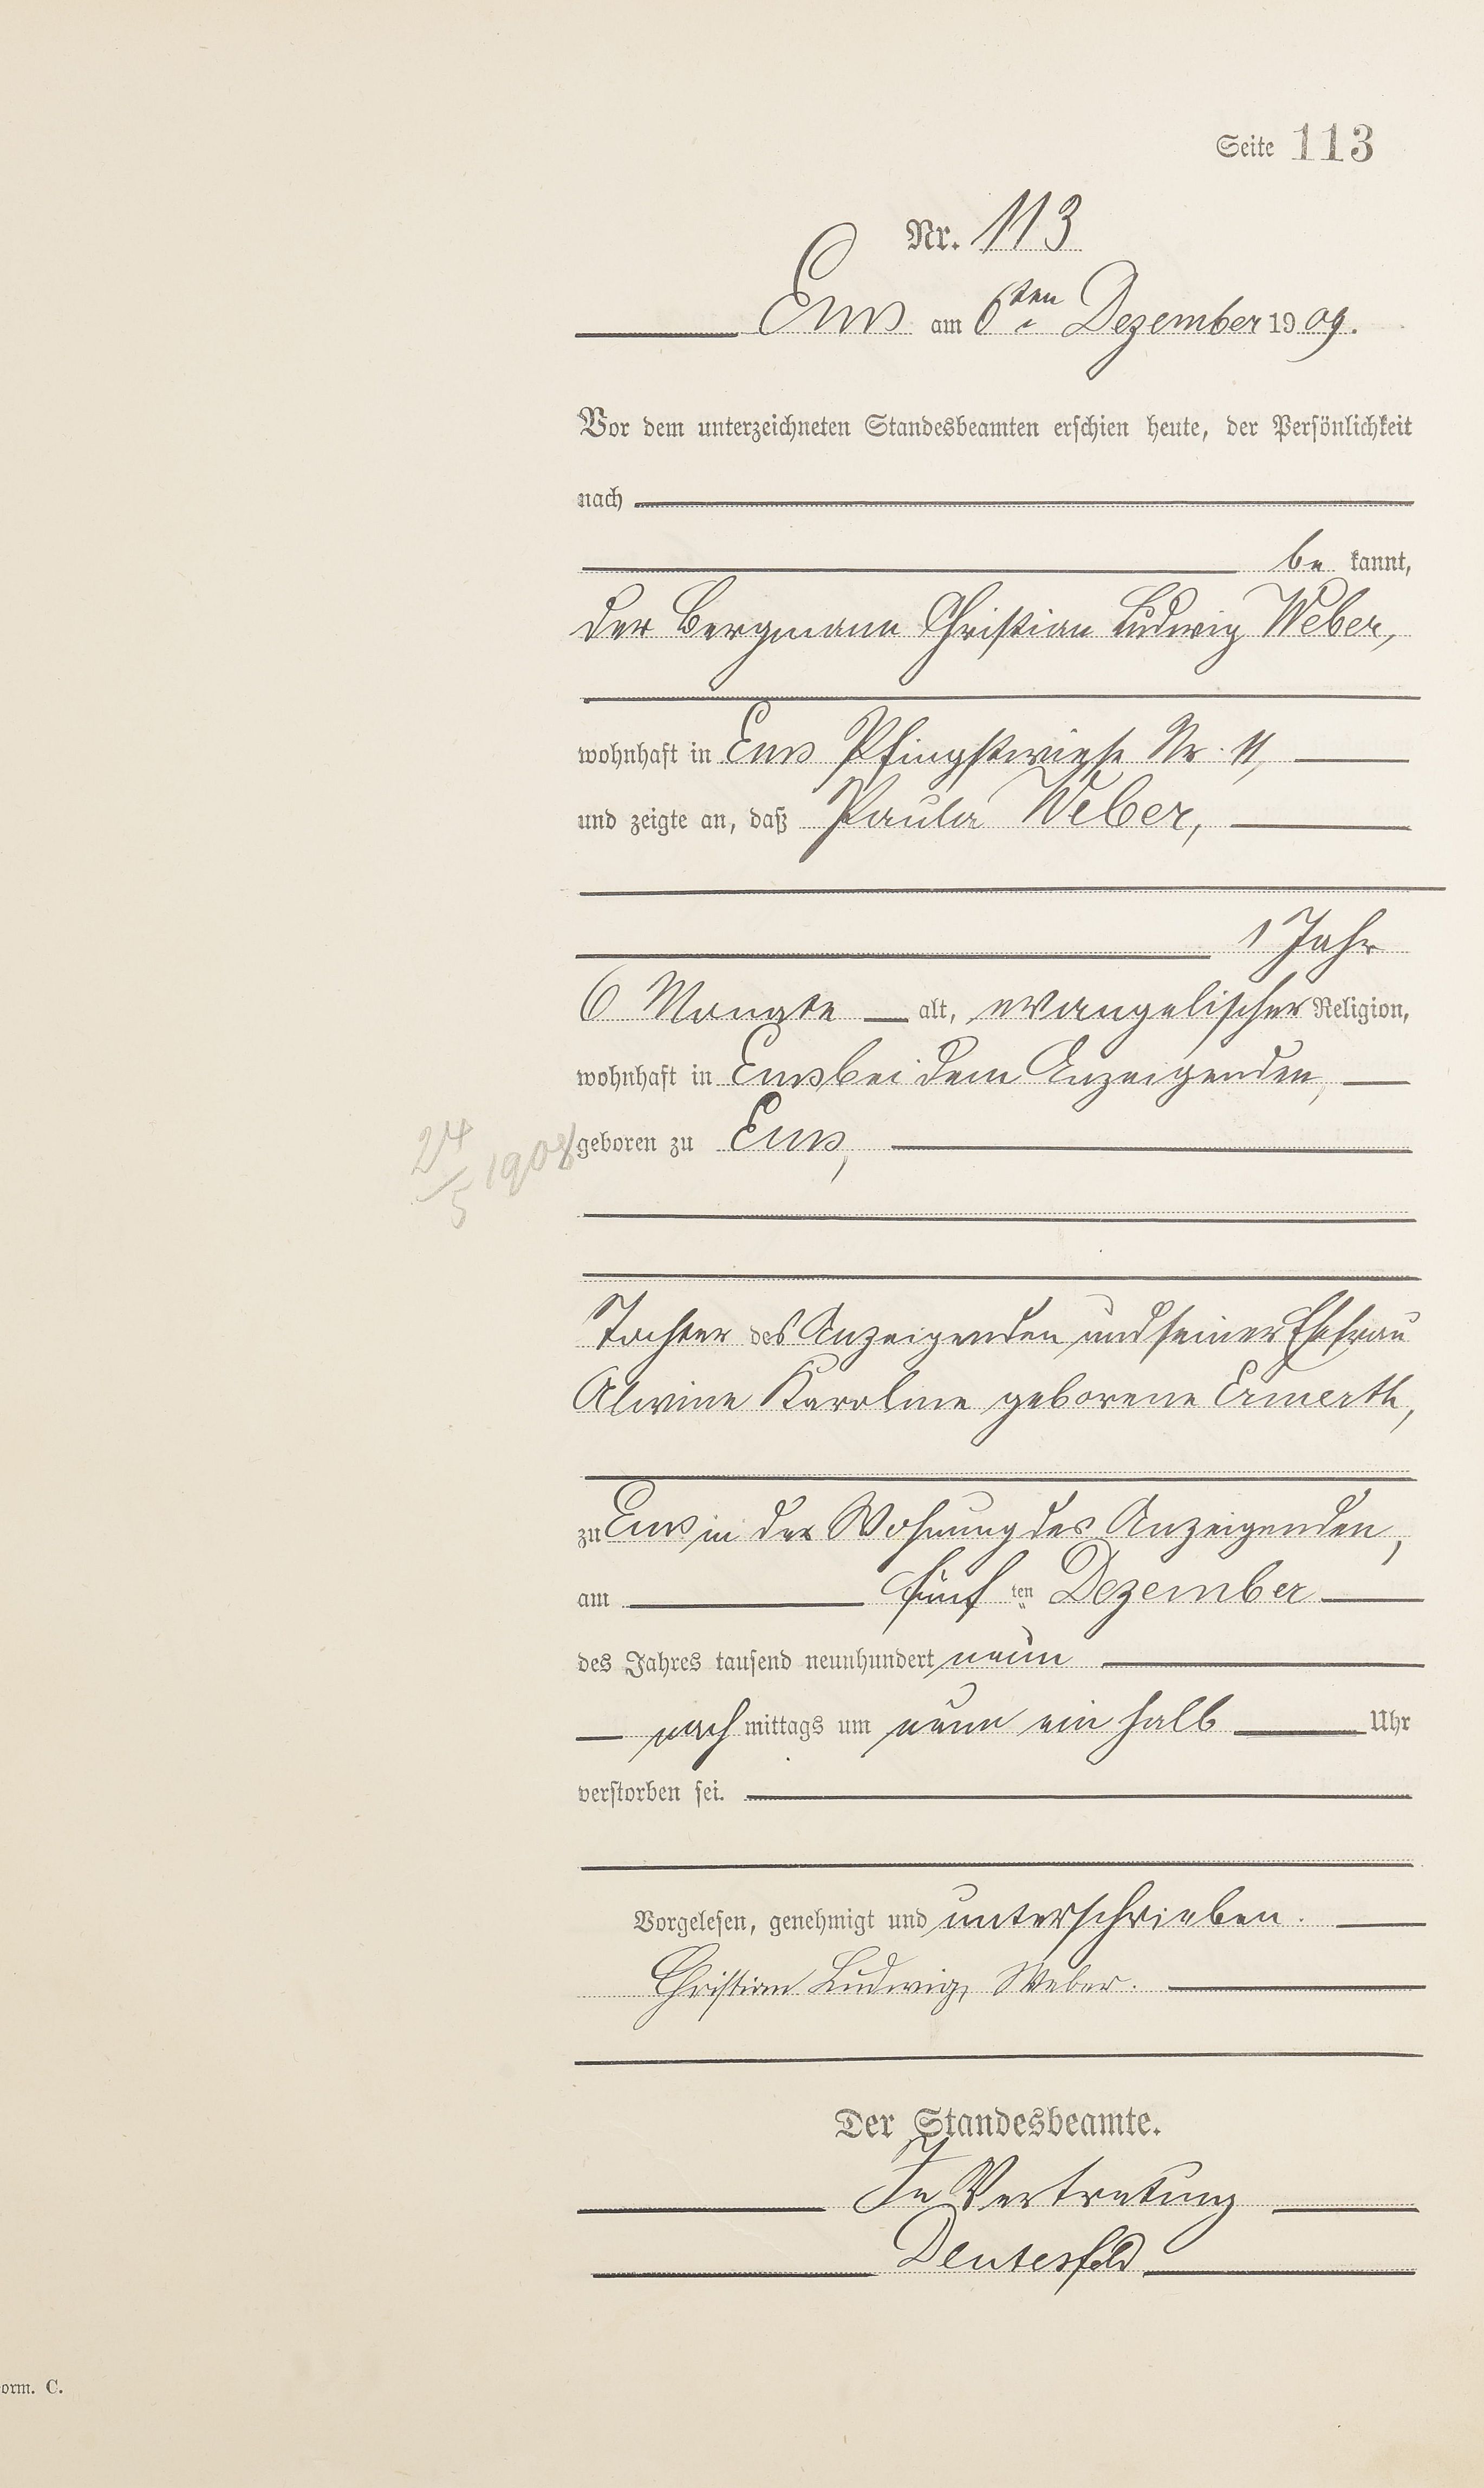 Seite 113
Nr. 113
Ems am 6ten Dezember 1909.
Vor dem unterzeichneten Standesbeamten erschien heute, der Persönlichkeit
nach
be kannt,
der Bergmann Christian Ludwig Weber,
wohnhaft in Ems Pfingstwiese Nr. 11,
und zeigte an, daß Paula Weber,
1 Jahr
6 Monate alt, evangelischer Religion,
wohnhaft in Ems bei dem Anzeigenden,
24/5 1908 geboren zu Ems,
Tochter des Anzeigenden und seiner Ehefrau
Alwine Karoline geborene Ermerth,
zu Ems in der Wohnung des Anzeigenden,
am fünf ten Dezember
des Jahres tausend neunhundert neun
nach mittags um neun ein halb Uhr
verstorben sei.
Vorgelesen, genehmigt und unterschrieben.
Christian Ludwig Weber.
Der Standesbeamte.
In Vertretung
Deutesfeld
orm. C.